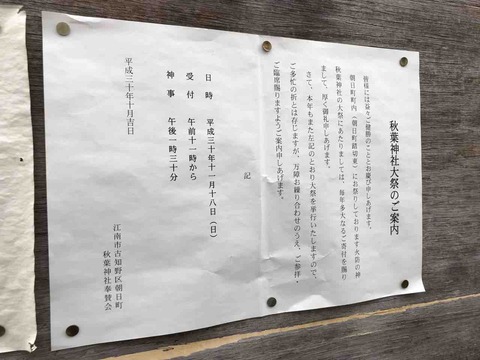 秋葉神社大祭のご案内
皆様には益々ご健勝のこととお慶び申しあげます。
朝日町町内（朝日町踏切東）にお祭りしております火防の神
秋葉神社の大祭にあたりましては、毎年多大なるご寄付を賜り
まして、厚く御礼申しあげます。
さて、本年もまた左記のとおり大祭を挙行いたしますので、
ご多忙の折とは存じますが、万障お繰り合わせのうえ、ご参拝・
ご臨席賜りますようご案内申しあげます。
記
日時　平成三十年十一月十八日（日）
受付　午前十一時から
神事　午後一時三十分
平成三十年十月吉日
江南市古知野区朝日町
秋葉神社奉賛会